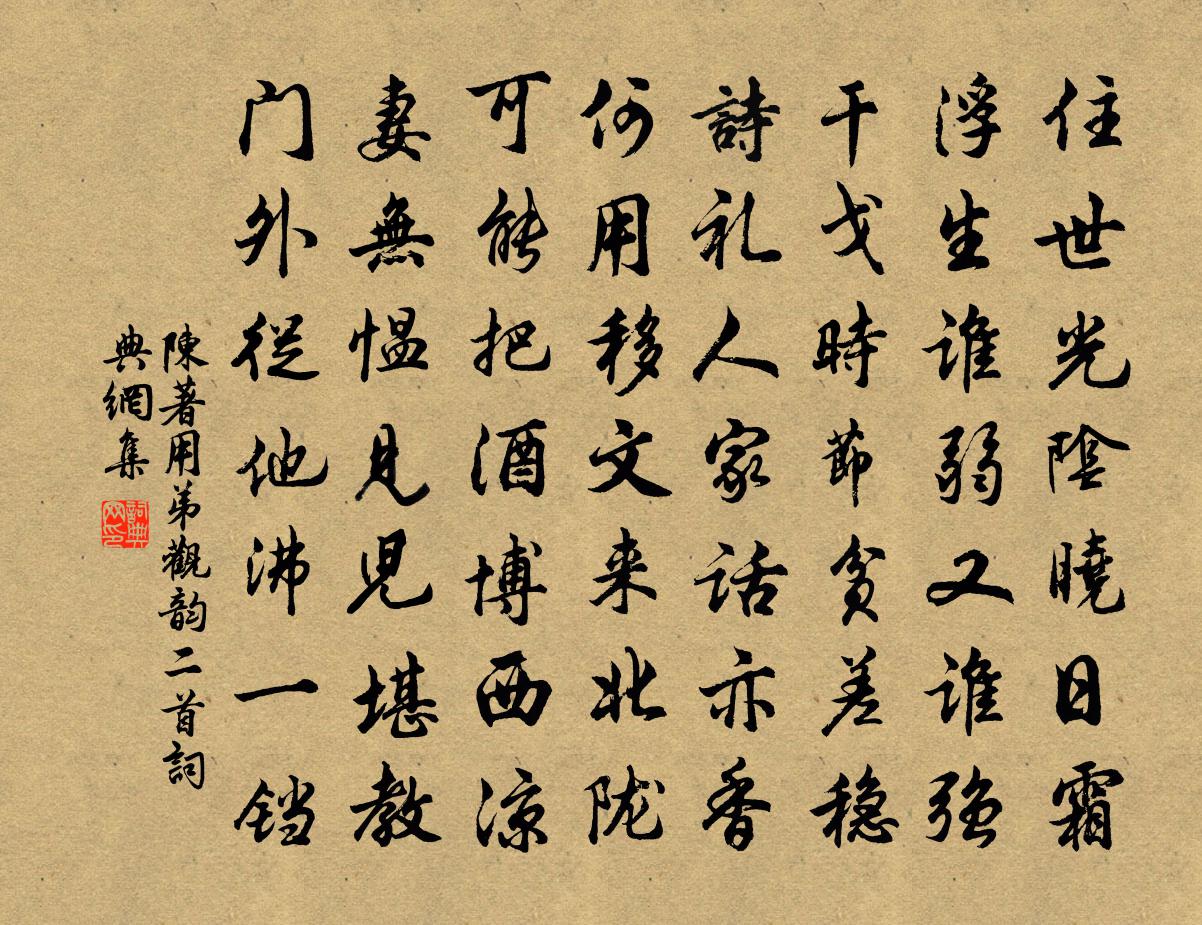 住世光陰曉日霜
浮生誰弱又誰強
干戈時節貧差穩
詩礼人家話亦香
何用移文来北陇
可能把酒博西涼
妻無愠見児堪教
门外從他沸一铛
陳著用弟觀韵二首詞
典網集
詞典网印